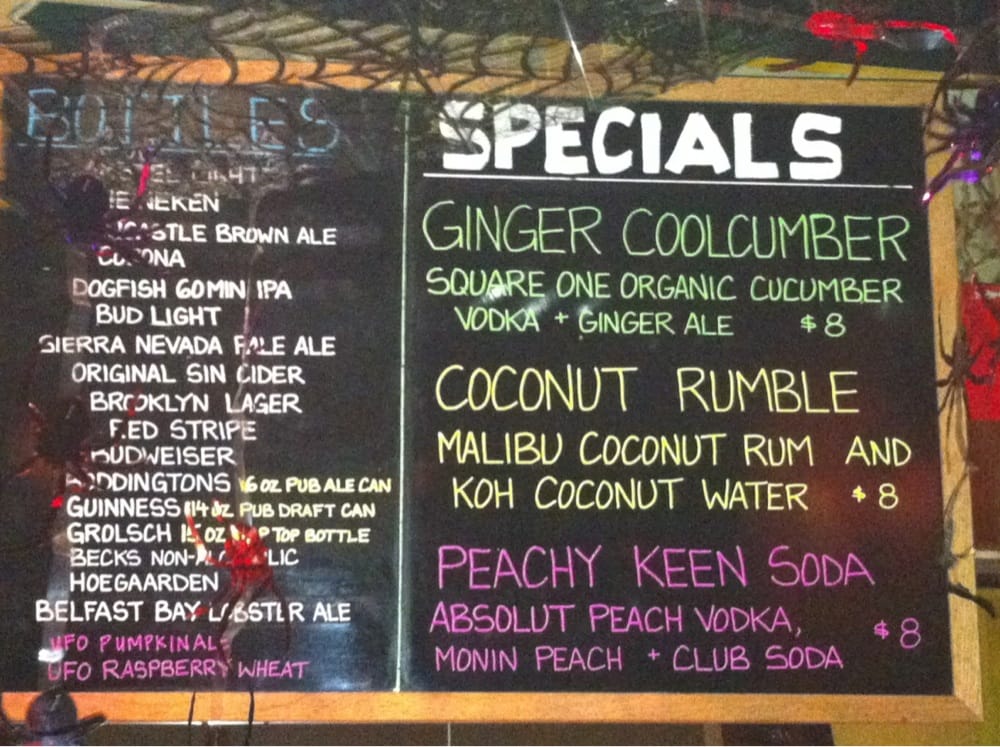 BOTTLES
LIGHT
HEINEKEN
NEWCASTLE BROWN ALE
CORONA
DOGFISH 60 MIN IPA
BUD LIGHT
SIERRA NEVADA PALE ALE
ORIGINAL SIN CIDER
BROOKLYN LAGER
RED STRIPE
BUDWEISER
BODDINGTONS 16 OZ. PUB ALE CAN
GUINNESS 14 OZ PUB DRAFT CAN
GROLSCH 15 OZ TOP BOTTLE
BECKS NON-ALCOHOLIC
HOEGAARDEN
BELFAST BAY LOBSTER ALE
UFO PUMPKINALE
UFO RASPBERRY WHEAT
SPECIALS
GINGER COOLCUMBER
SQUARE ONE ORGANIC CUCUMBER
VODKA + GINGER ALE $8
COCONUT RUMBLE
MALIBU COCONUT RUM AND
KOH COCONUT WATER $8
PEACHY KEEN SODA
ABSOLUT PEACH VODKA, $8
MONIN PEACH + CLUB SODA